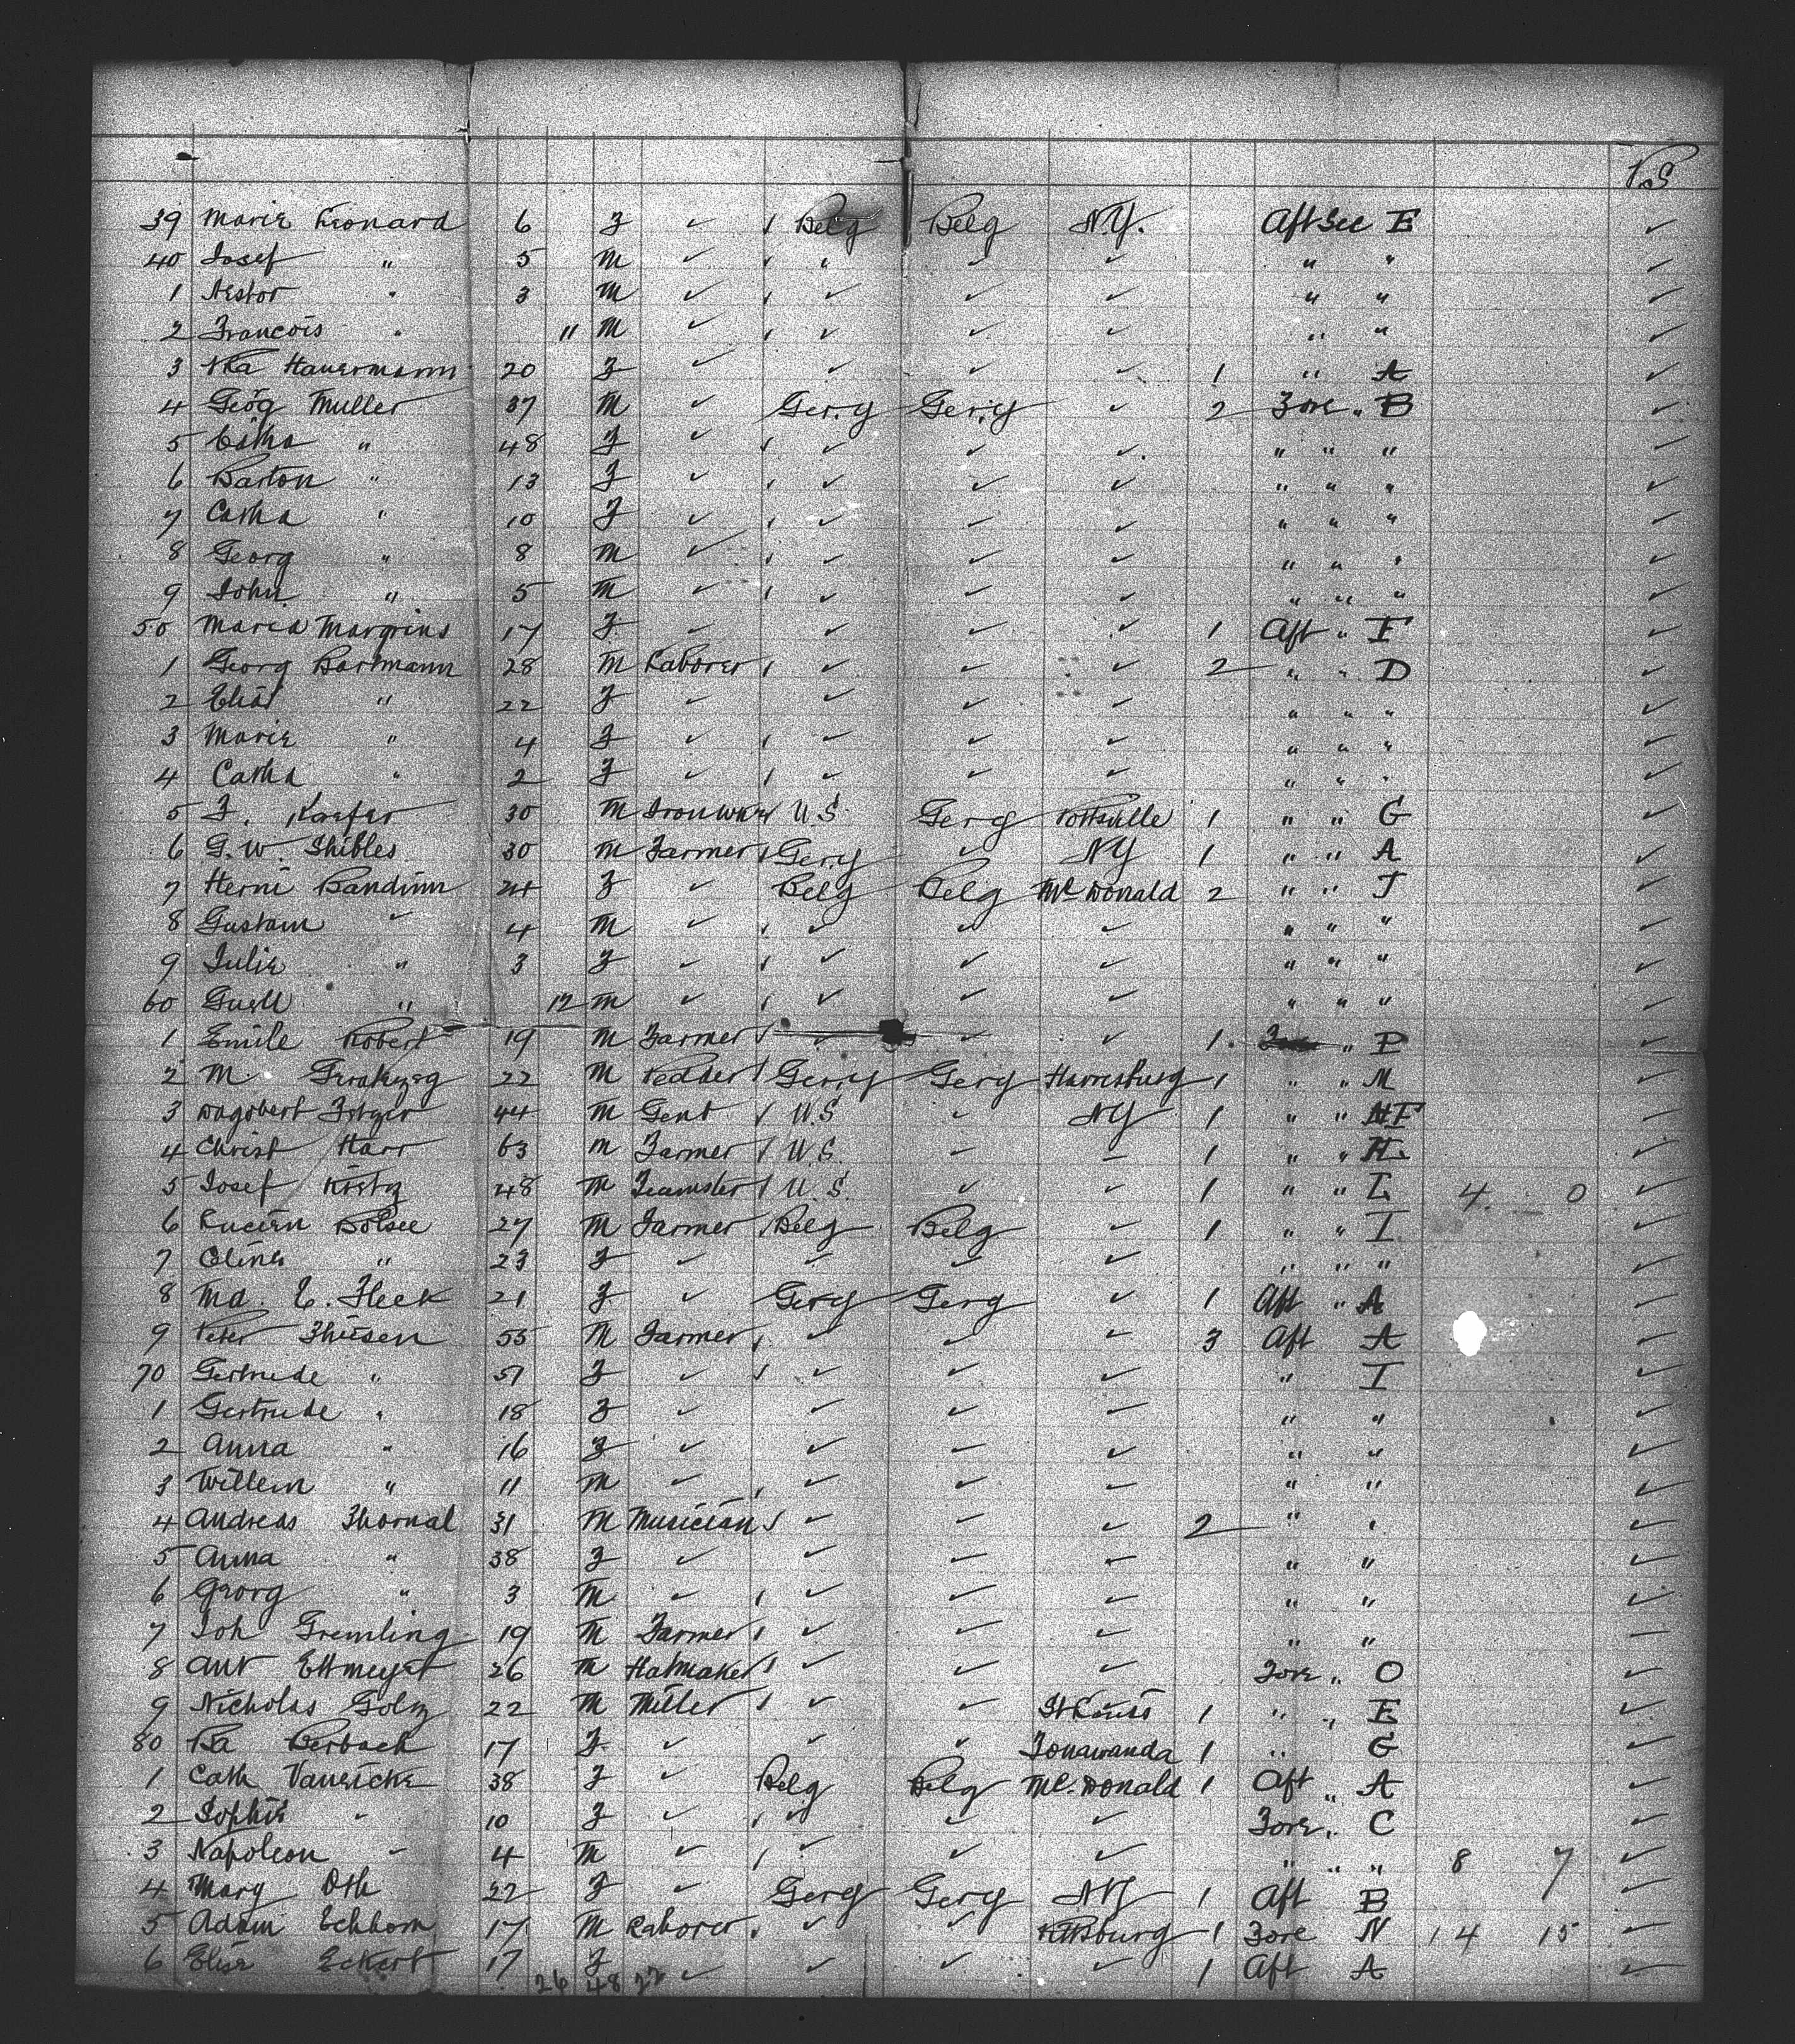 V.S
39 Marie Leonard 6 F ✓ ✓ Belg Belg N.Y. Aft Sec E ✓
40 Josef " 5 M ✓ ✓ " ✓ ✓ " " ✓
1 Nestor " 3 M ✓ ✓ ✓ ✓ ✓ " " ✓
2 Francois " 11 M ✓ ✓ ✓ ✓ ✓ " " ✓
3 Hauermann 20 F ✓ ✓ ✓ ✓ 1 " A ✓
4 Geog Muller 37 M ✓ Gery Gery ✓ 2 Fore " B ✓
5 Catha " 48 F ✓ ✓ ✓ ✓ ✓ " " " ✓
6 Barton " 13 F ✓ ✓ ✓ ✓ ✓ " " " ✓
7 Catha " 10 F ✓ ✓ ✓ ✓ ✓ " " " ✓
8 Georg " 8 M ✓ ✓ ✓ ✓ ✓ " " " ✓
9 John " 5 M ✓ ✓ ✓ ✓ ✓ " " " ✓
50 Maria Margrins 17 F ✓ ✓ ✓ ✓ 1 Aft " F ✓
1 Georg Bormann 28 M Laborer ✓ ✓ ✓ ✓ 2 " " D ✓
2 " 22 F ✓ ✓ ✓ ✓ " " " ✓
3 Marie " 4 F ✓ ✓ ✓ ✓ ✓ " " " ✓
4 Catha " 2 F ✓ ✓ ✓ ✓ ✓ " " " ✓
5 F. Kaefer 30 M U.S. Gerg Pottsville 1 " " G ✓
6 G. W. Shibles 30 M Farmer ✓ Gery ✓ NY 1 " " A ✓
7 Herni Bandinn 24 F ✓ Belg Belg Mc Donald 2 " " J ✓
8 Gustam " 4 M ✓ ✓ ✓ ✓ ✓ " " " ✓
9 Julie " 3 F ✓ ✓ ✓ ✓ ✓ " " " ✓
60 " 12 M ✓ ✓ ✓ ✓ ✓ " " " ✓
1 Emile Robert 19 M Farmer ✓ ✓ ✓ ✓ 1 " P ✓
2 M. 22 M Pedder ✓ Gerry Gery Harresburg 1 " " M ✓
3 Dagobert 44 M Gent ✓ U.S ✓ NY 1 " " ✓
4 Christ Harr 63 M Farmer ✓ U.S. ✓ ✓ 1 " " H ✓
5 Josef 48 M Teamster ✓ U.S. ✓ ✓ 1 " " L 4. 0 ✓
6 Lucien Bolsee 27 M Farmer ✓ Belg Belg ✓ 1 " " I ✓
7 Elines " 23 F ✓ ✓ ✓ ✓ " " " ✓
8 Md. E. Fleck 21 F ✓ Gery Gerg ✓ 1 Aft " A ✓
9 Peter Thiesen 55 M Farmer ✓ ✓ ✓ ✓ 3 Aft A ✓
70 Gertrude " 51 F ✓ ✓ ✓ ✓ ✓ " I ✓
1 Gertrude " 18 F ✓ ✓ ✓ ✓ " " ✓
2 Anna " 16 F ✓ ✓ ✓ ✓ " " ✓
3 Willem " 11 M ✓ ✓ ✓ ✓ ✓ " " ✓
4 Andreas Thornal 31 M Musician ✓ ✓ ✓ ✓ 2 " " ✓
5 Anna " 38 F ✓ ✓ ✓ ✓ " " ✓
6 Georg " 3 M ✓ ✓ ✓ ✓ ✓ " " ✓
7 Joh Gremling 19 M Farmer ✓ ✓ ✓ ✓ " " ✓
8 Ant Ettmeyer 26 M Hatmaker ✓ ✓ ✓ ✓ Fore " O ✓
9 Nicholas Golz 22 M Miller ✓ ✓ ✓ St Louis 1 " " E ✓
80 Ba Berbach 17 F ✓ ✓ ✓ Tonawanda 1 " G ✓
1 Cath Vanericke 38 F ✓ Belg Belg Mc. Donald 1 Aft " A ✓
2 Sophie " 10 F ✓ ✓ ✓ ✓ ✓ Fore " C ✓
3 Napoleon " 4 M ✓ ✓ ✓ ✓ ✓ " " " 8 7 ✓
4 Marg Oth 22 F ✓ Gery Gery NY 1 Aft B ✓
5 Adam Echhorn 17 M Laborer ✓ ✓ ✓ Pittsburg 1 Fore N 14 15 ✓
6 Elise Eckert 17 F ✓ ✓ ✓ ✓ 1 Aft A ✓
26 48 22